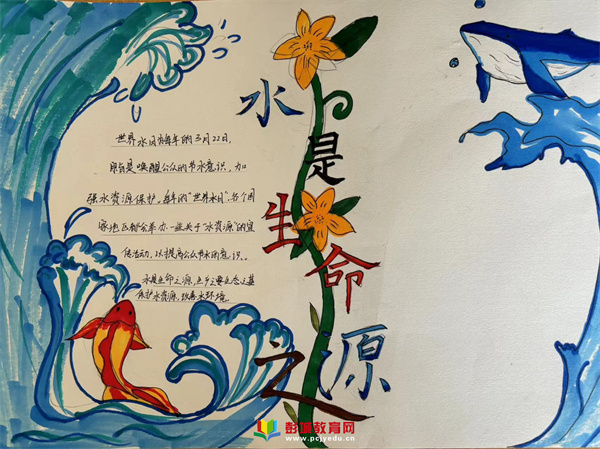 水是生命之源
世界水日为每年的3月22日,
目的是唤醒公众的节水意识,加
强水资源保护。每年的"世界水日",各个国
家地区都会举办一些关于"水资源"的宣
传活动,以提高公众节水的意识。
水是生命之源,生产之要,生态之基
保护水资源,改善水环境。
彭城教育网
www.pcjyedu.cn